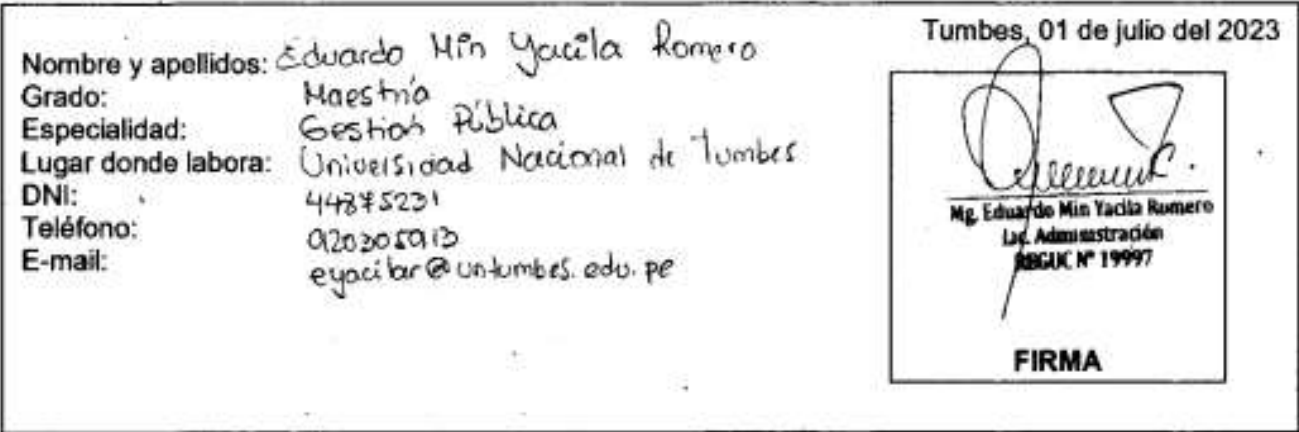 Tumbes, 01 de julio del 2023
Nombre y apellidos: Eduardo Min Yacila Romero
Grado: Maestría
Especialidad: Gestión Pública
Lugar donde labora: Universidad Nacional de Tumbes
DNI: 44875231
Teléfono: 920305913
E-mail: eyacilar@untumbes.edu.pe
Mg. Eduardo Min Yacila Romero
Lic. Administración
REGUC N° 19997
FIRMA